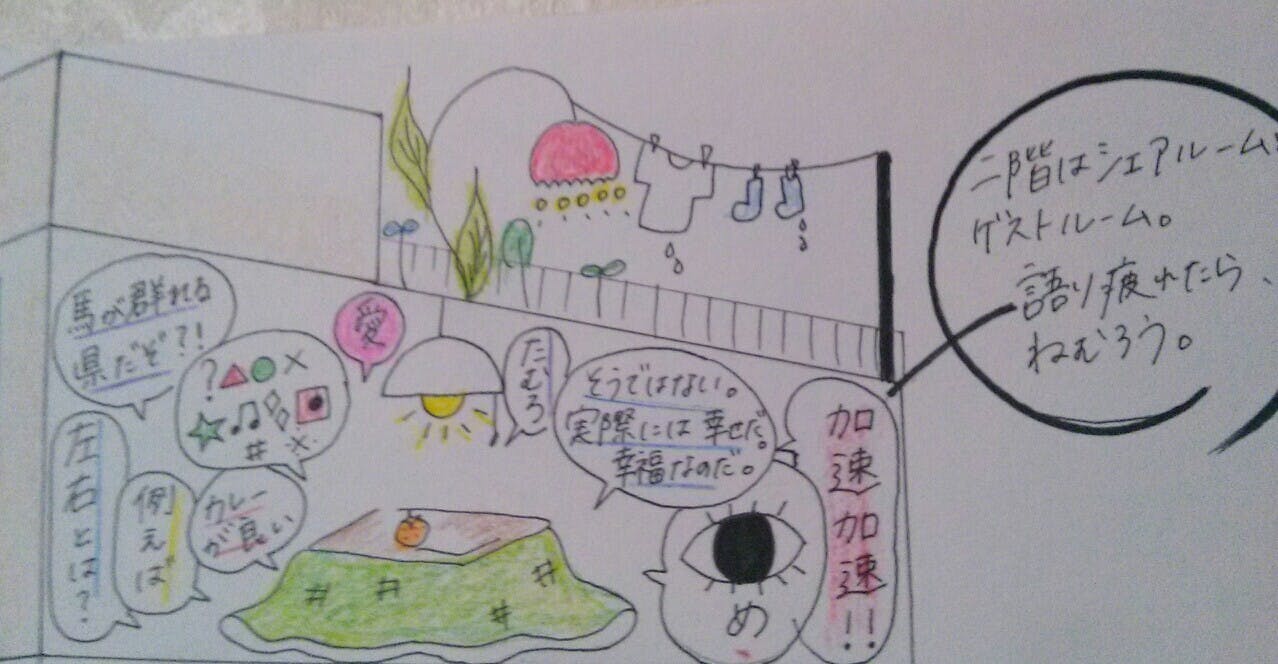 二階はシェアルーム
ゲストルーム。
語り疲れたら、
ねむろう。
馬が群れる
県だぞ?!
?
#
愛
たむろ
そうではない。
実際には幸せだ。
幸福なのだ。
加速加速!!
左右とは?
例えば
カレー
が良い
め